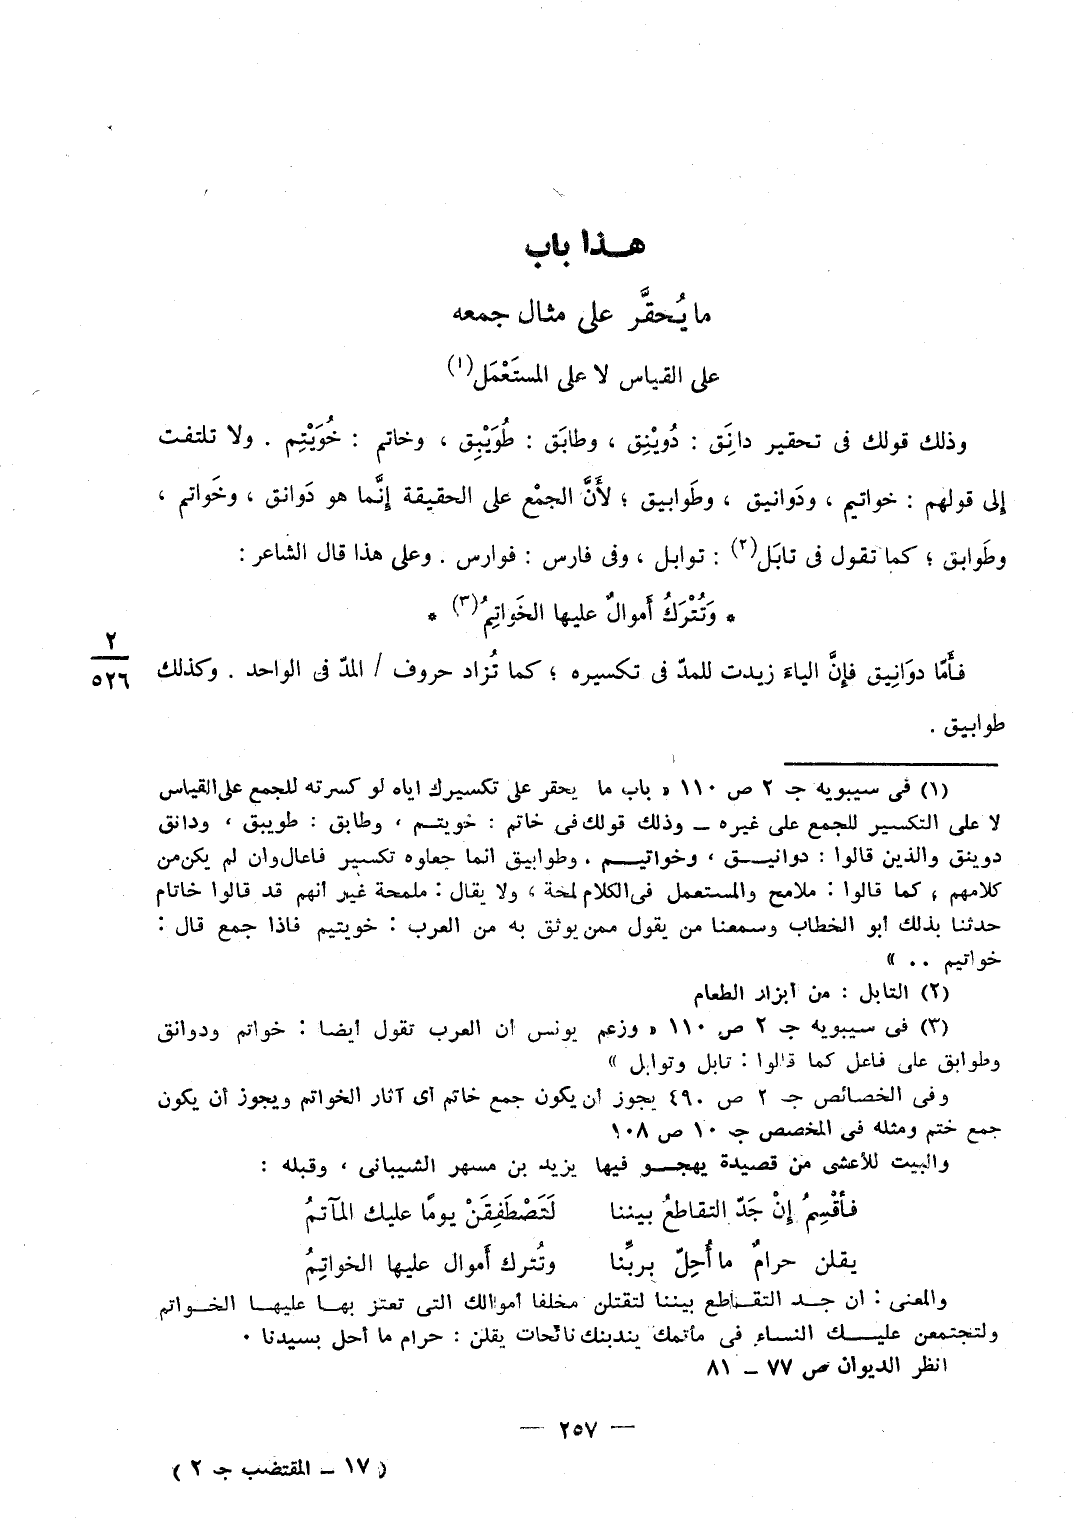 هـذا باب
ما يُحقَّر على مثال جمعه
على القياس لا على المستَعْمَل(١)
وذلك قولك فى تحقير دانَِق : دُوينِق ، وطابَق : طُوَيْبِق ، وخاتم : خُوَيْتِم . ولا تلتفت
إلى قولهم : خواتيم ، ودَوانيق ، وطَوابيق ؛ لأَنَّ الجمْع على الحقيقة إنَّما هو دَوانق ، وخَواتم ،
وطَوابق ؛ كما تقول فى تابَل(٢) : توابل ، وفى فارس : فوارس . وعلى هذا قال الشاعر :
* وَتُتْرَكُ أَموالٌ عليها الخَواتِمُ(٣) *
فأَمّا دوَانِيق فإنَّ الياءَ زيدت للمدّ فى تكسيره ؛ كما تُزاد حروف / المدّ فى الواحد . وكذلك
٢
٥٢٦
طوابيق .
(١) فى سيبويه جـ ٢ ص ١١٠ « باب ما يحقر على تكسيرك اياه لو كسرته للجمع على القياس
لا على التكسير للجمع على غيره – وذلك قولك فى خاتم : خويتـم ، وطابق : طويبق ، ودانق
دوينق والذين قالوا : دوانيـق ، وخواتيـم . وطوابيق انما جعلوه تكسير فاعال وان لم يكن من
كلامهم ، كما قالوا : ملامح والمستعمل فى الكلام لمحة ، ولا يقال : ملمحة غير أنهم قد قالوا خاتام
حدثنا بذلك أبو الخطاب وسمعنا من يقول ممن يوثق به من العرب : خويتيم فاذا جمع قال :
خواتيم . . »
(٢) التابل : من أبزار الطعام
(٣) فى سيبويه جـ ٢ ص ١١٠ « وزعم يونس أن العرب تقول أيضا : خواتم ودوانق
وطوابق على فاعل كما قالوا : تابل وتوابل »
وفى الخصائص جـ ٢ ص ٤٩٠ يجوز أن يكون جمع خاتم أى آثار الخواتم ويجوز أن يكون
جمع ختم ومثله فى المخصص جـ ١٠ ص ١٠٨
والبيت للأعشى من قصيدة يهجـو فيها يزيد بن مسهر الشيبانى ، وقبله :
فأقْسِمُ إنْ جَدّ التقاطعُ بيننا لَتَصْطَفِقَنْ يومًا عليك المآتمُ
يقلن حرامٌ ما أُحِلّ بربِّنا وتُترك أَموال عليها الخواتِمُ
والمعنى : ان جـد التقـاطع بيننا لتقتلن مخلفا أموالك التى تعتز بهـا عليهـا الخـواتم
ولتجتمعن عليـك النساء فى مأتمك يندبنك نائحات يقلن : حرام ما أحل بسيدنا ٠
انظر الديوان ص ٧٧ – ٨١
— ٢٥٧ —
( ١٧ – المقتضب جـ ٢ )